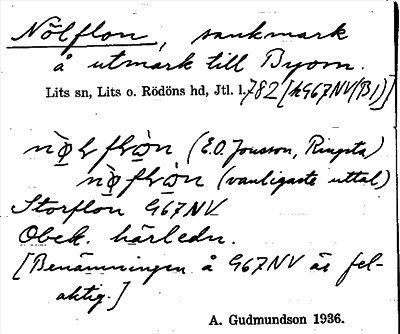 Nölflon, sankmark
å utmark till Byom.
Lits sn, Lits o. Rödöns hd, Jtl. l. 782 [h967NV(B1)]
(E.O. Jonsson, Ringsta)
(vanligaste uttal)
Storflon 967NV
Obek. härledn.
[Benämningen å 967NV är fel-
aktig.]
A. Gudmundson 1936.